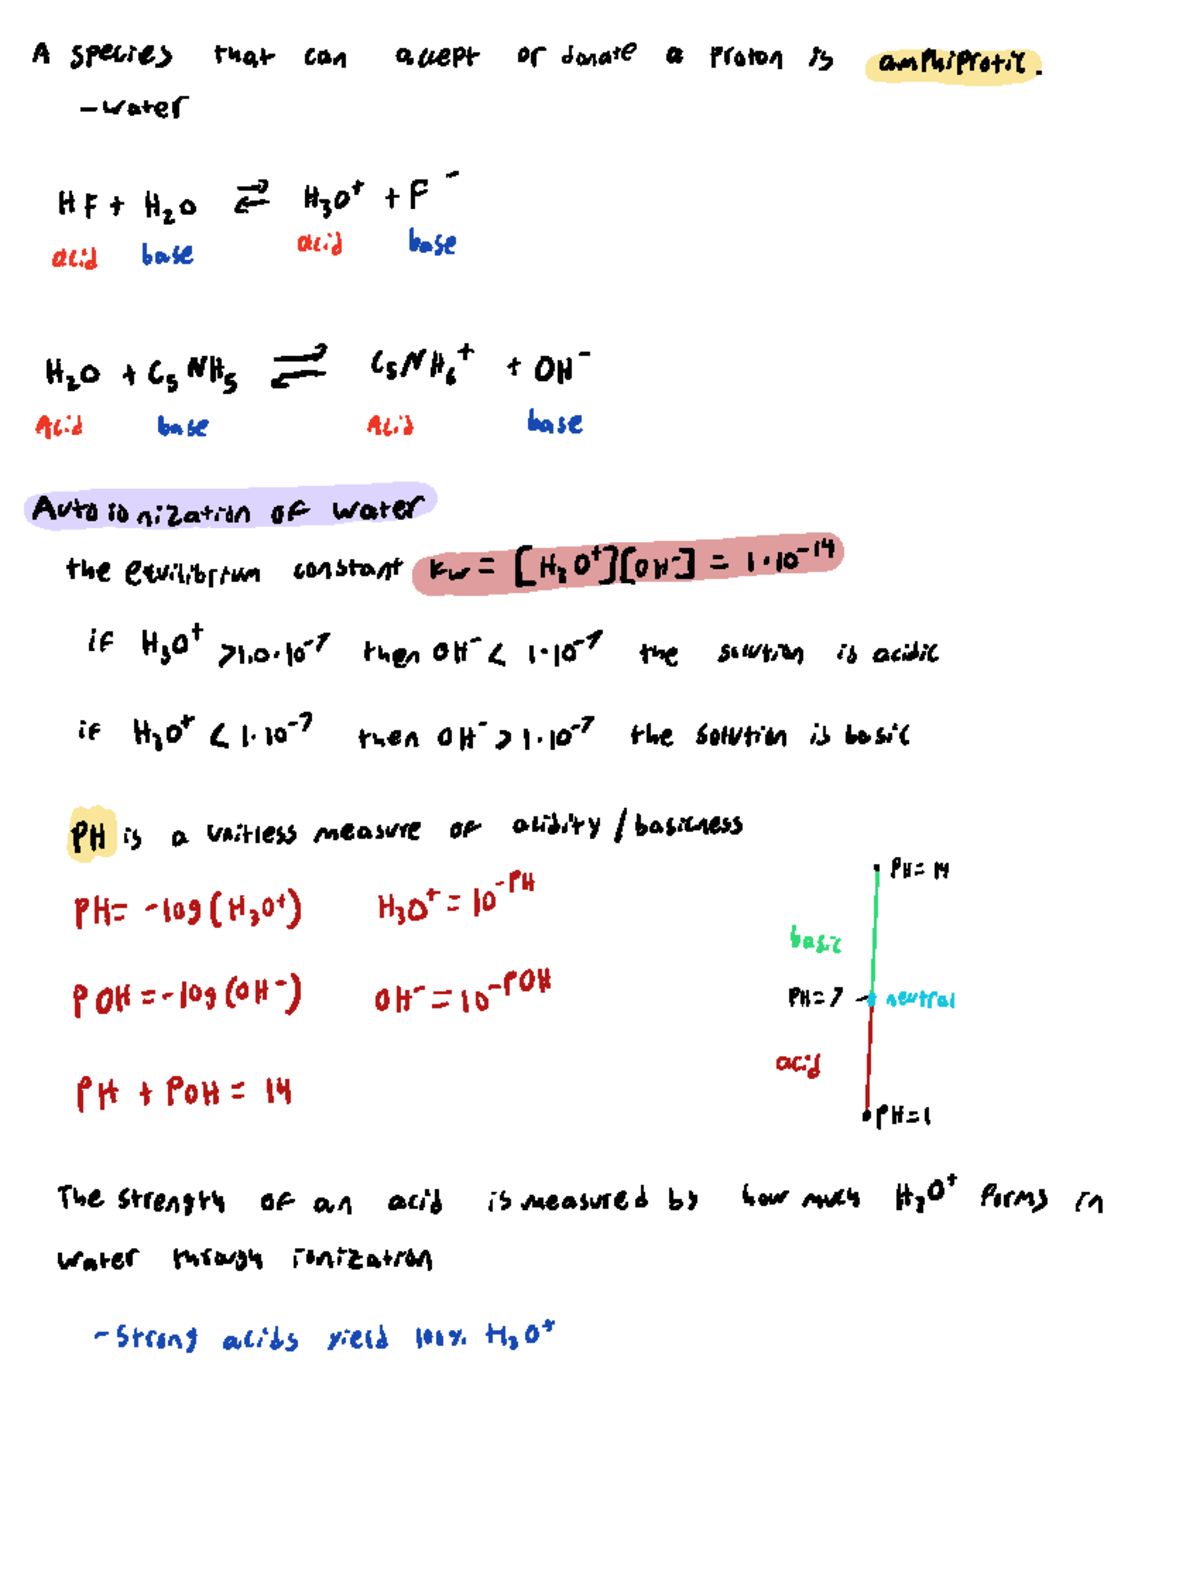 A species that can accept or donate a proton is amphiprotic.
-water
HF + H₂O ⇌ H₃O⁺ + F⁻
acid base acid base
H₂O + C₅NH₅ ⇌ C₅NH₆⁺ + OH⁻
Acid base Acid base
Autoionization of water
the equilibrium constant Kw = [H₃O⁺][OH⁻] = 1·10⁻¹⁴
if H₃O⁺ >1.0·10⁻⁷ then OH⁻ < 1·10⁻⁷ the solution is acidic
if H₃O⁺ < 1·10⁻⁷ then OH⁻ > 1·10⁻⁷ the solution is basic
PH is a unitless measure of acidity/basicness
PH = -log(H₃O⁺) H₃O⁺ = 10⁻ᴾᴴ
POH = -log(OH⁻) OH⁻ = 10⁻ᴾᴼᴴ
PH + POH = 14
PH = 14
basic
PH = 7 neutral
acid
PH = 1
The strength of an acid is measured by how much H₃O⁺ forms in
water through ionization
-Strong acids yield 100% H₃O⁺